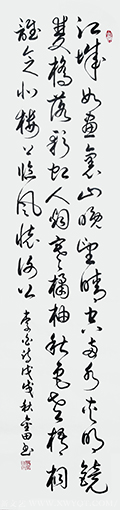 江城如畫裏山晚望晴空兩水夾明鏡
雙橋落彩虹人烟寒橘柚秋色老梧桐
誰念北樓上臨風懷謝公 李白詩戊戌秋 書